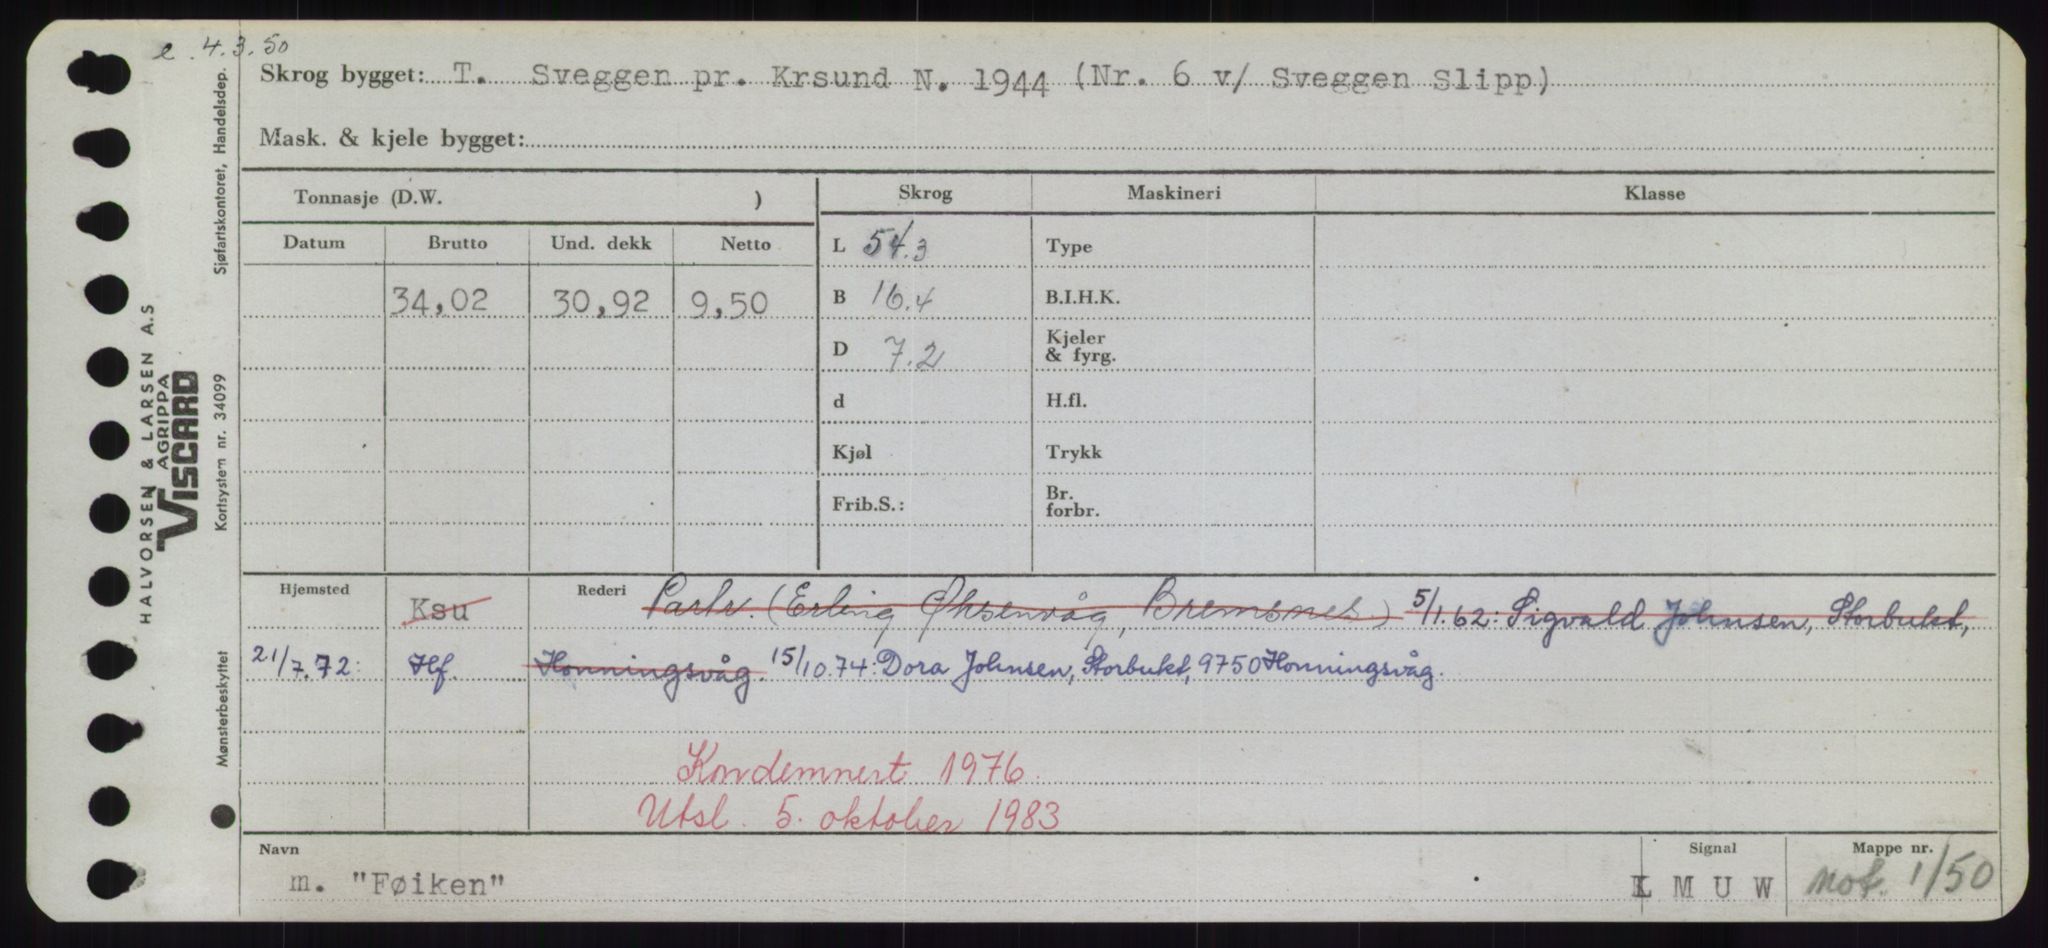 e. 4.3.50
Skrog bygget: T. Sveggen pr. Krsund N. 1944 (Nr. 6 v/ Sveggen Slipp)
Mask. & kjele bygget:
Tonnasje (D.W. )
Skrog
Maskineri
Klasse
Datum Brutto Und. dekk Netto
34,02 30,92 9,50
L 54.3
B 16.4
D 7.2
d
Kjøl
Frib.S.:
Type
B.I.H.K.
Kjeler
& fyrg.
H.fl.
Trykk
Br.
forbr.
Hjemsted Ksu Rederi Partr. (Erling Øksenvåg, Bremsnes) 5/1.62: Sigvald Johnsen, Storbukt,
21/7.72: Hf. Honningsvåg. 15/10.74: Dora Johnsen, Storbukt, 9750 Honningsvåg.
Kondemnert 1976.
Utsl. 5. oktober 1983
Navn
m. "Føiken"
Signal
L M U W
Mappe nr.
not. 1/50
HALVORSEN & LARSEN A.S
AGRIPPA
VISCARD
Sjøfartskontoret, Handelsdep.
Kortsystem nr. 34099
Mønsterbeskyttet